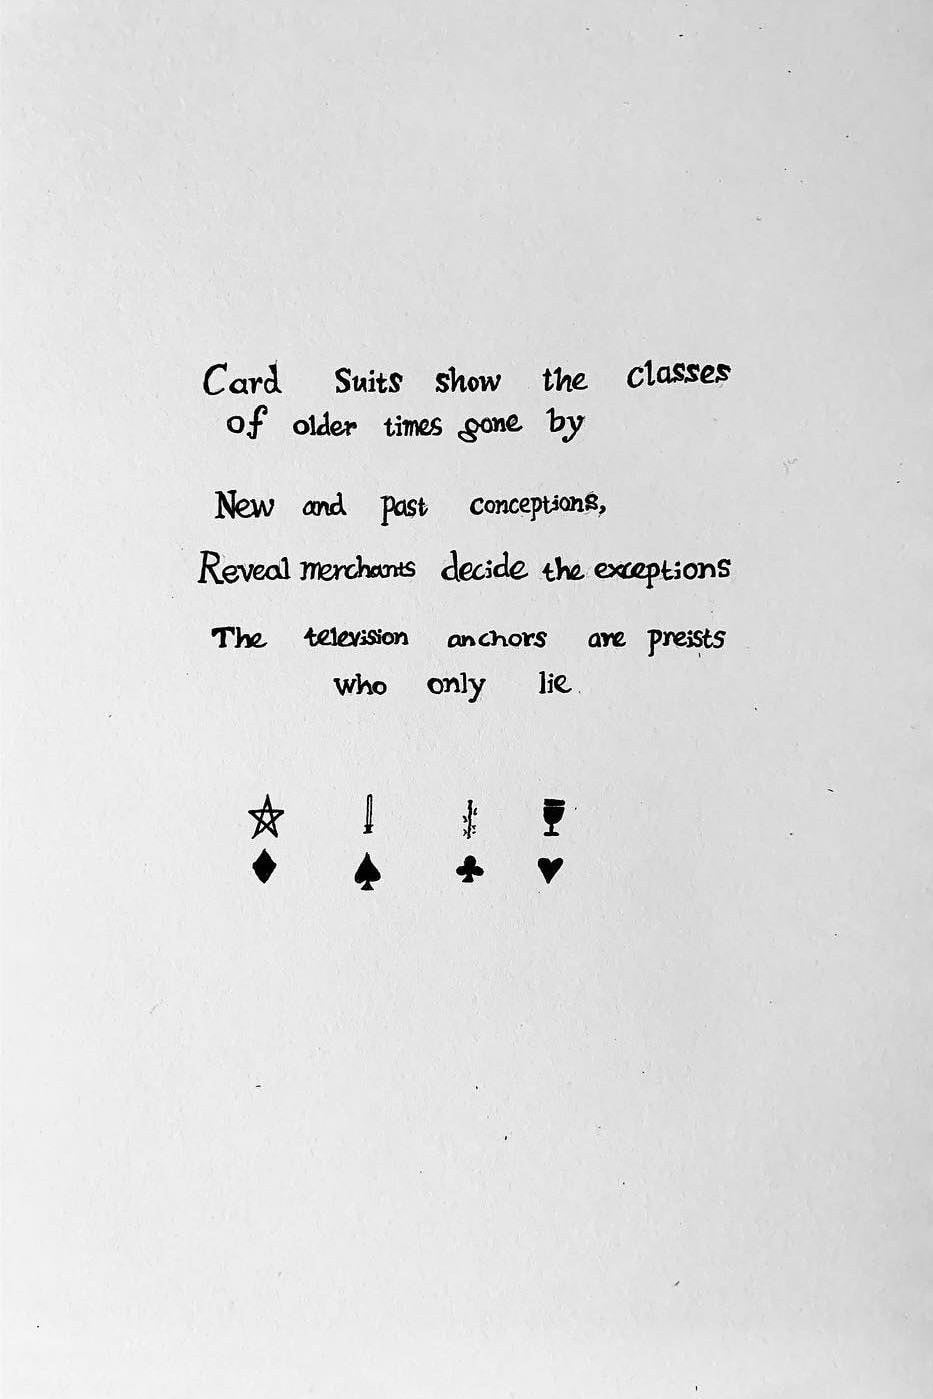 Card Suits show the classes
of older times gone by
New and past conceptions,
Reveal merchants decide the exceptions
The television anchors are preists
who only lie.